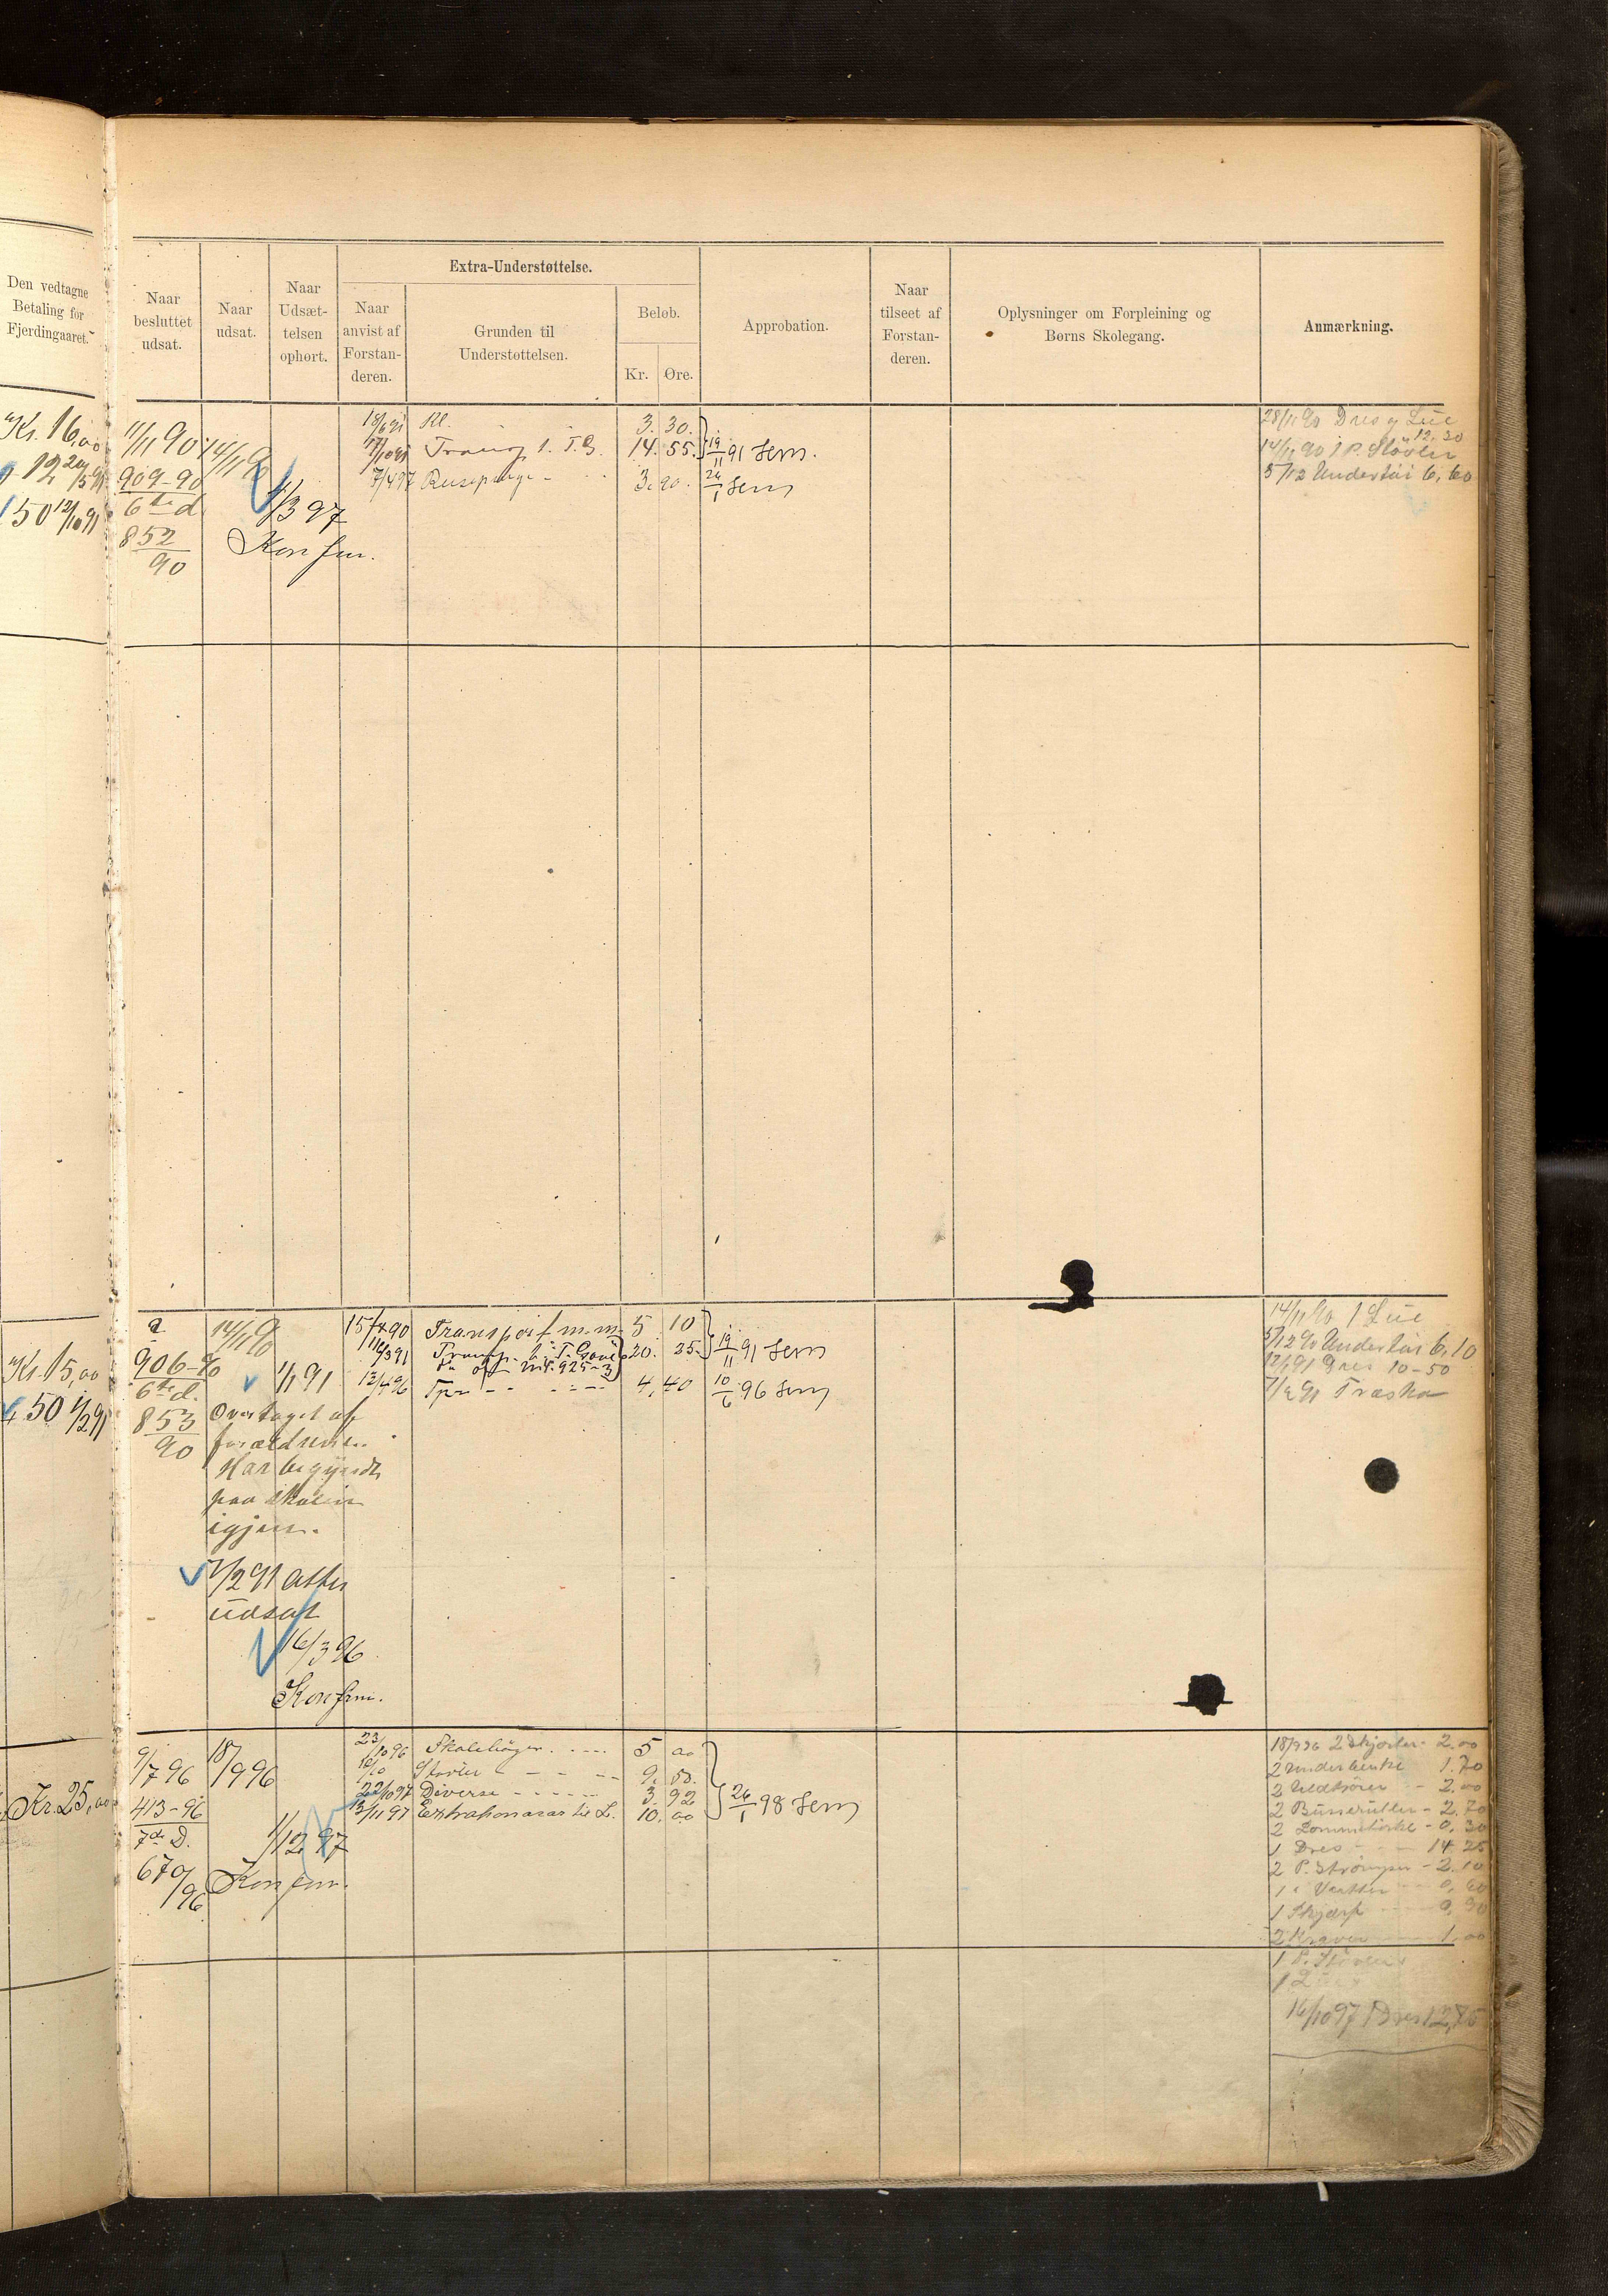 Den vedtagne
Betaling for
Fjerdingaaret.
Naar
besluttet
udsat.
Naar
udsat.
Naar
Udsæt-
telsen
ophørt.
Extra-Understøttelse.
Naar
anvist af
Forstan-
deren.
Grunden til
Understøttelsen.
Beløb.
Kr. Øre.
Approbation.
Naar
tilseet af
Forstan-
deren.
Oplysninger om Forpleining og
Børns Skolegang.
Anmærkning.
Kr. 16,00
12 20/5 91
50 12/10 91
11/11 90
909-90
6te d
852
90
14/11 90
1/3 97
Konfm.
18/6 91 Kl. 3. 30.
Transp. 14. 55.
7/4 97 3. 90.
19/11 91 Sem.
26/1 Sem
28/11 90 Dres og Lue
12,30
14/11 90 1 P. Støvler
5/12 Undertøi 6,60
Kr. 15,00
50 1/2 91
906-90
6te d.
853
90
14/11 90
1/1 91
Overtaget af
forældrene.
Har begyndt
paa skolen
igjen.
1/2 91 atter
udsat
16/3 96
Konfm.
15/12 90 Transport m.m. 5 10
20. 35.
12/4 96 4,40
19/11 91 Sem
10/6 96 Sem
14/11 90 1 Lue
5/12 90 Undertøi 6,10
Dres 10-50
7/2 91 Træsko
Kr. 25,00
9/7 96
413-96
7de D.
670/96
18/9 96
1/12 97
Konfm.
23/10 96 Skolebøger. 5 00
Støvler 9.
22/10 97 Diverse 3. 92
13/11 97 Extrahonorar til L. 10. 00
26/1 98 Sem
18/9 96 2 Skjorter 2.00
2 Underbenkl 1.70
2 Uldtrøier 2.00
2 Busseruller - 2.70
2 Lommetørkl - 0,30
1 Dres 14.25
2 P. Strømper - 2.10
1 " Vanter 0,60
1 Skjærf 0,90
2 Kraver 1,00
1 P. Støvler
16/10 97 1 Dres 12,75